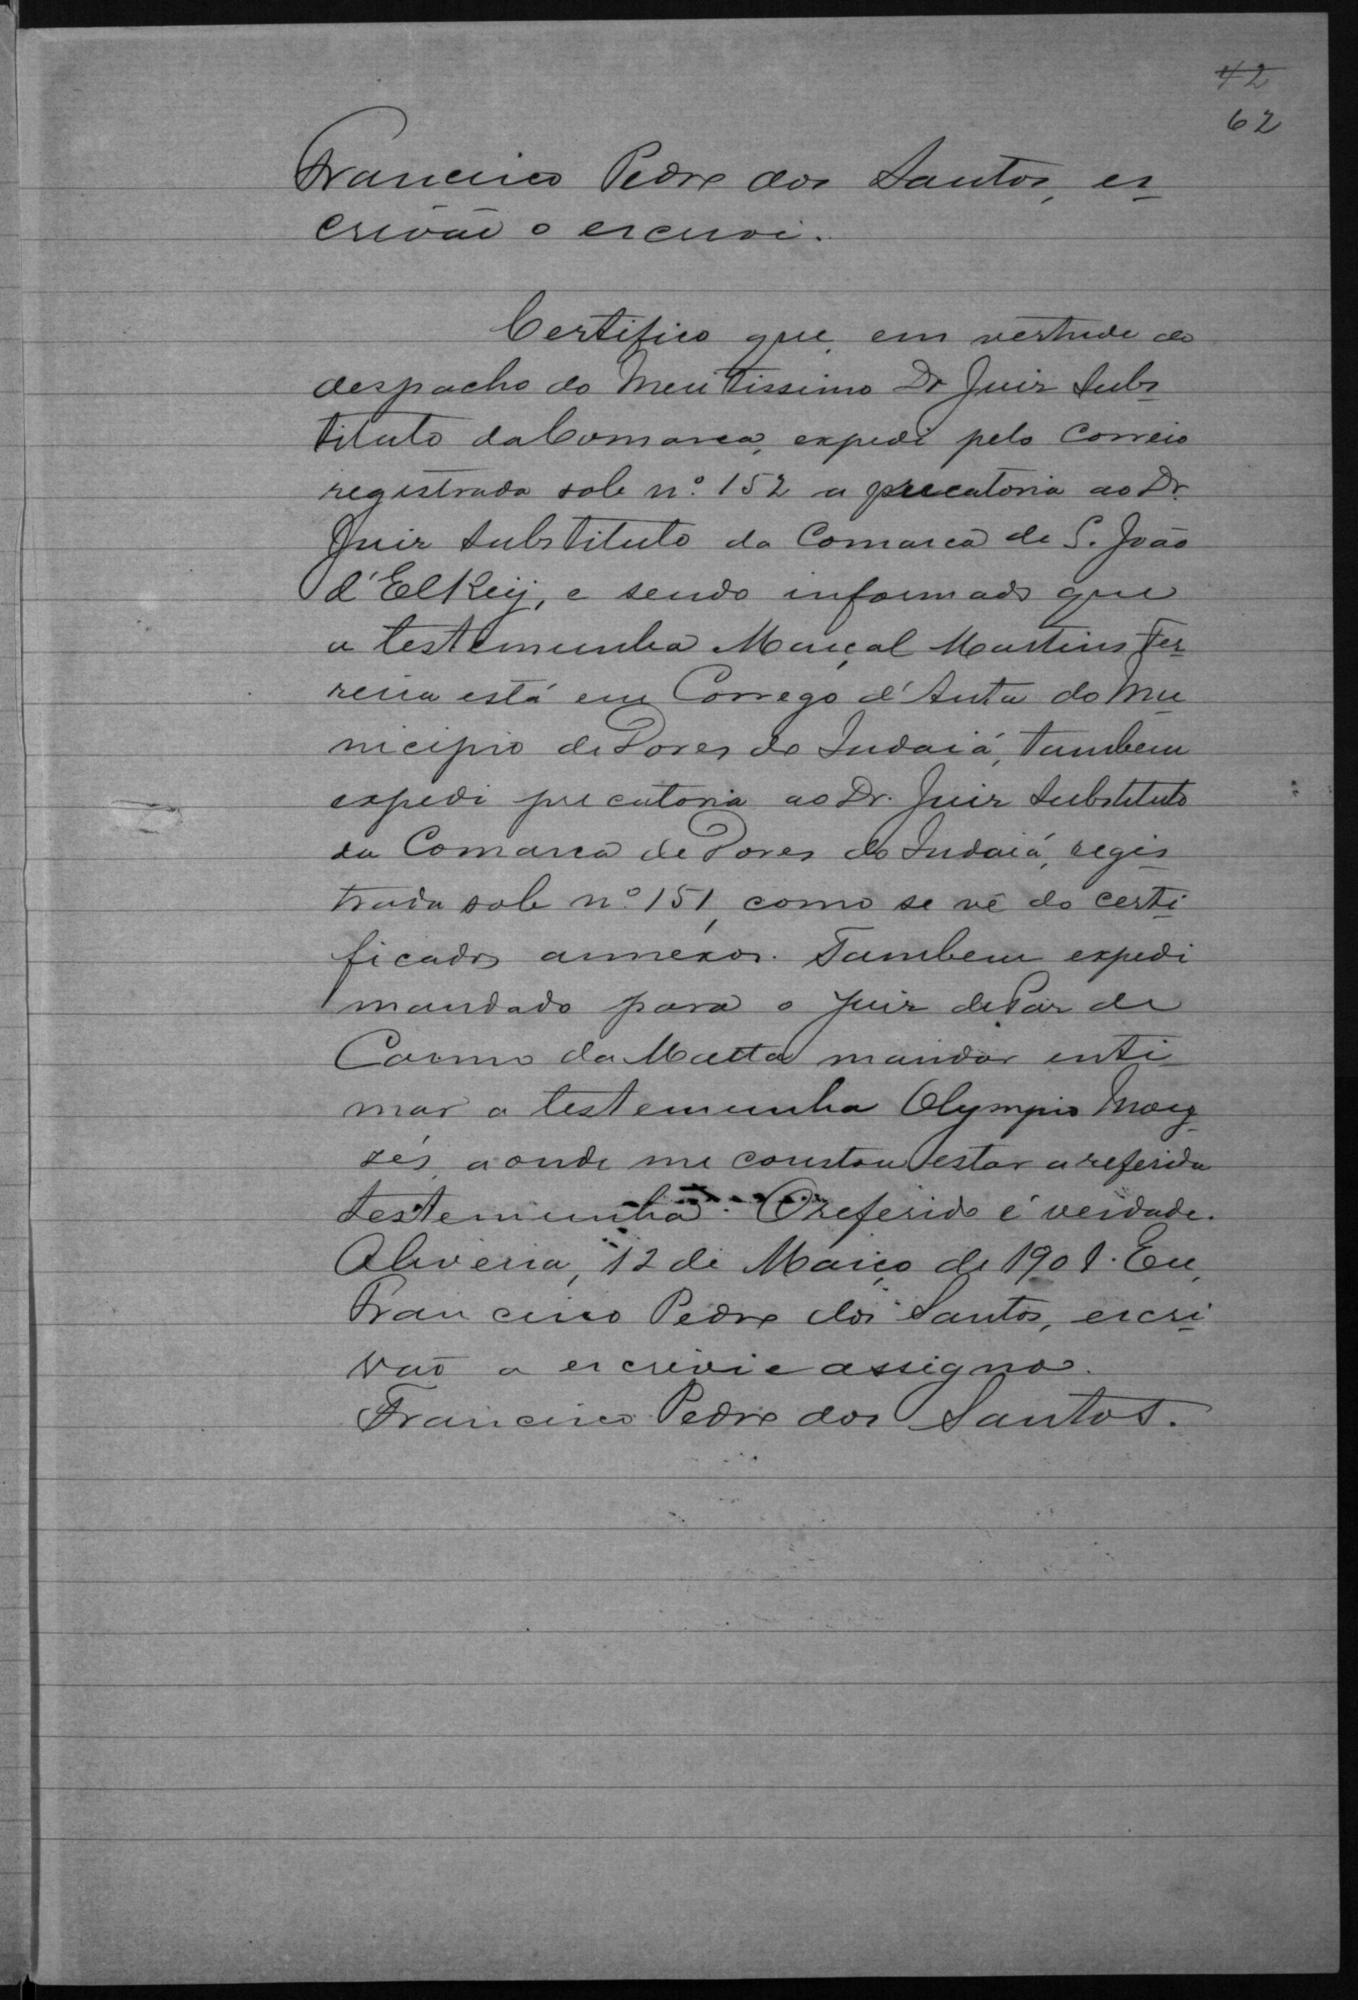 42
62
Francisco Pedro dos Santos, es
crivão o escrevi.
Certifico que, em vertude do
despacho do Meritissimo Dr Juiz Subs
tituto da Comarca, expedi pelo Correio
registrada sob n.º 152 a precatoria ao Dr.
Juiz Substituto da Comarca de S. João
d'El Rey, e sendo informado que
a testemunha Marçal Martins Fer
reira está em Corrego d'Anta do Mu
nicipio de Dores do Indaiá, tambem
expedi precatoria ao Dr. Juiz Substituto
da Comarca de Dores do Indaiá, regis
trada sob n.º 151, como se vê do certi
ficados annexos. Tambem expedi
mandado para o Juiz de Paz de
Carmo da Matta mandar inti
mar a testemunha Olympio Moy
zés, aonde me constou estar a referida
testemunha. O referido é verdade.
Oliveira, 12 de Março de 1901. Eu,
Francisco Pedro dos Santos, escri
vão o escrevi e assigno.
Francisco Pedro dos Santos.